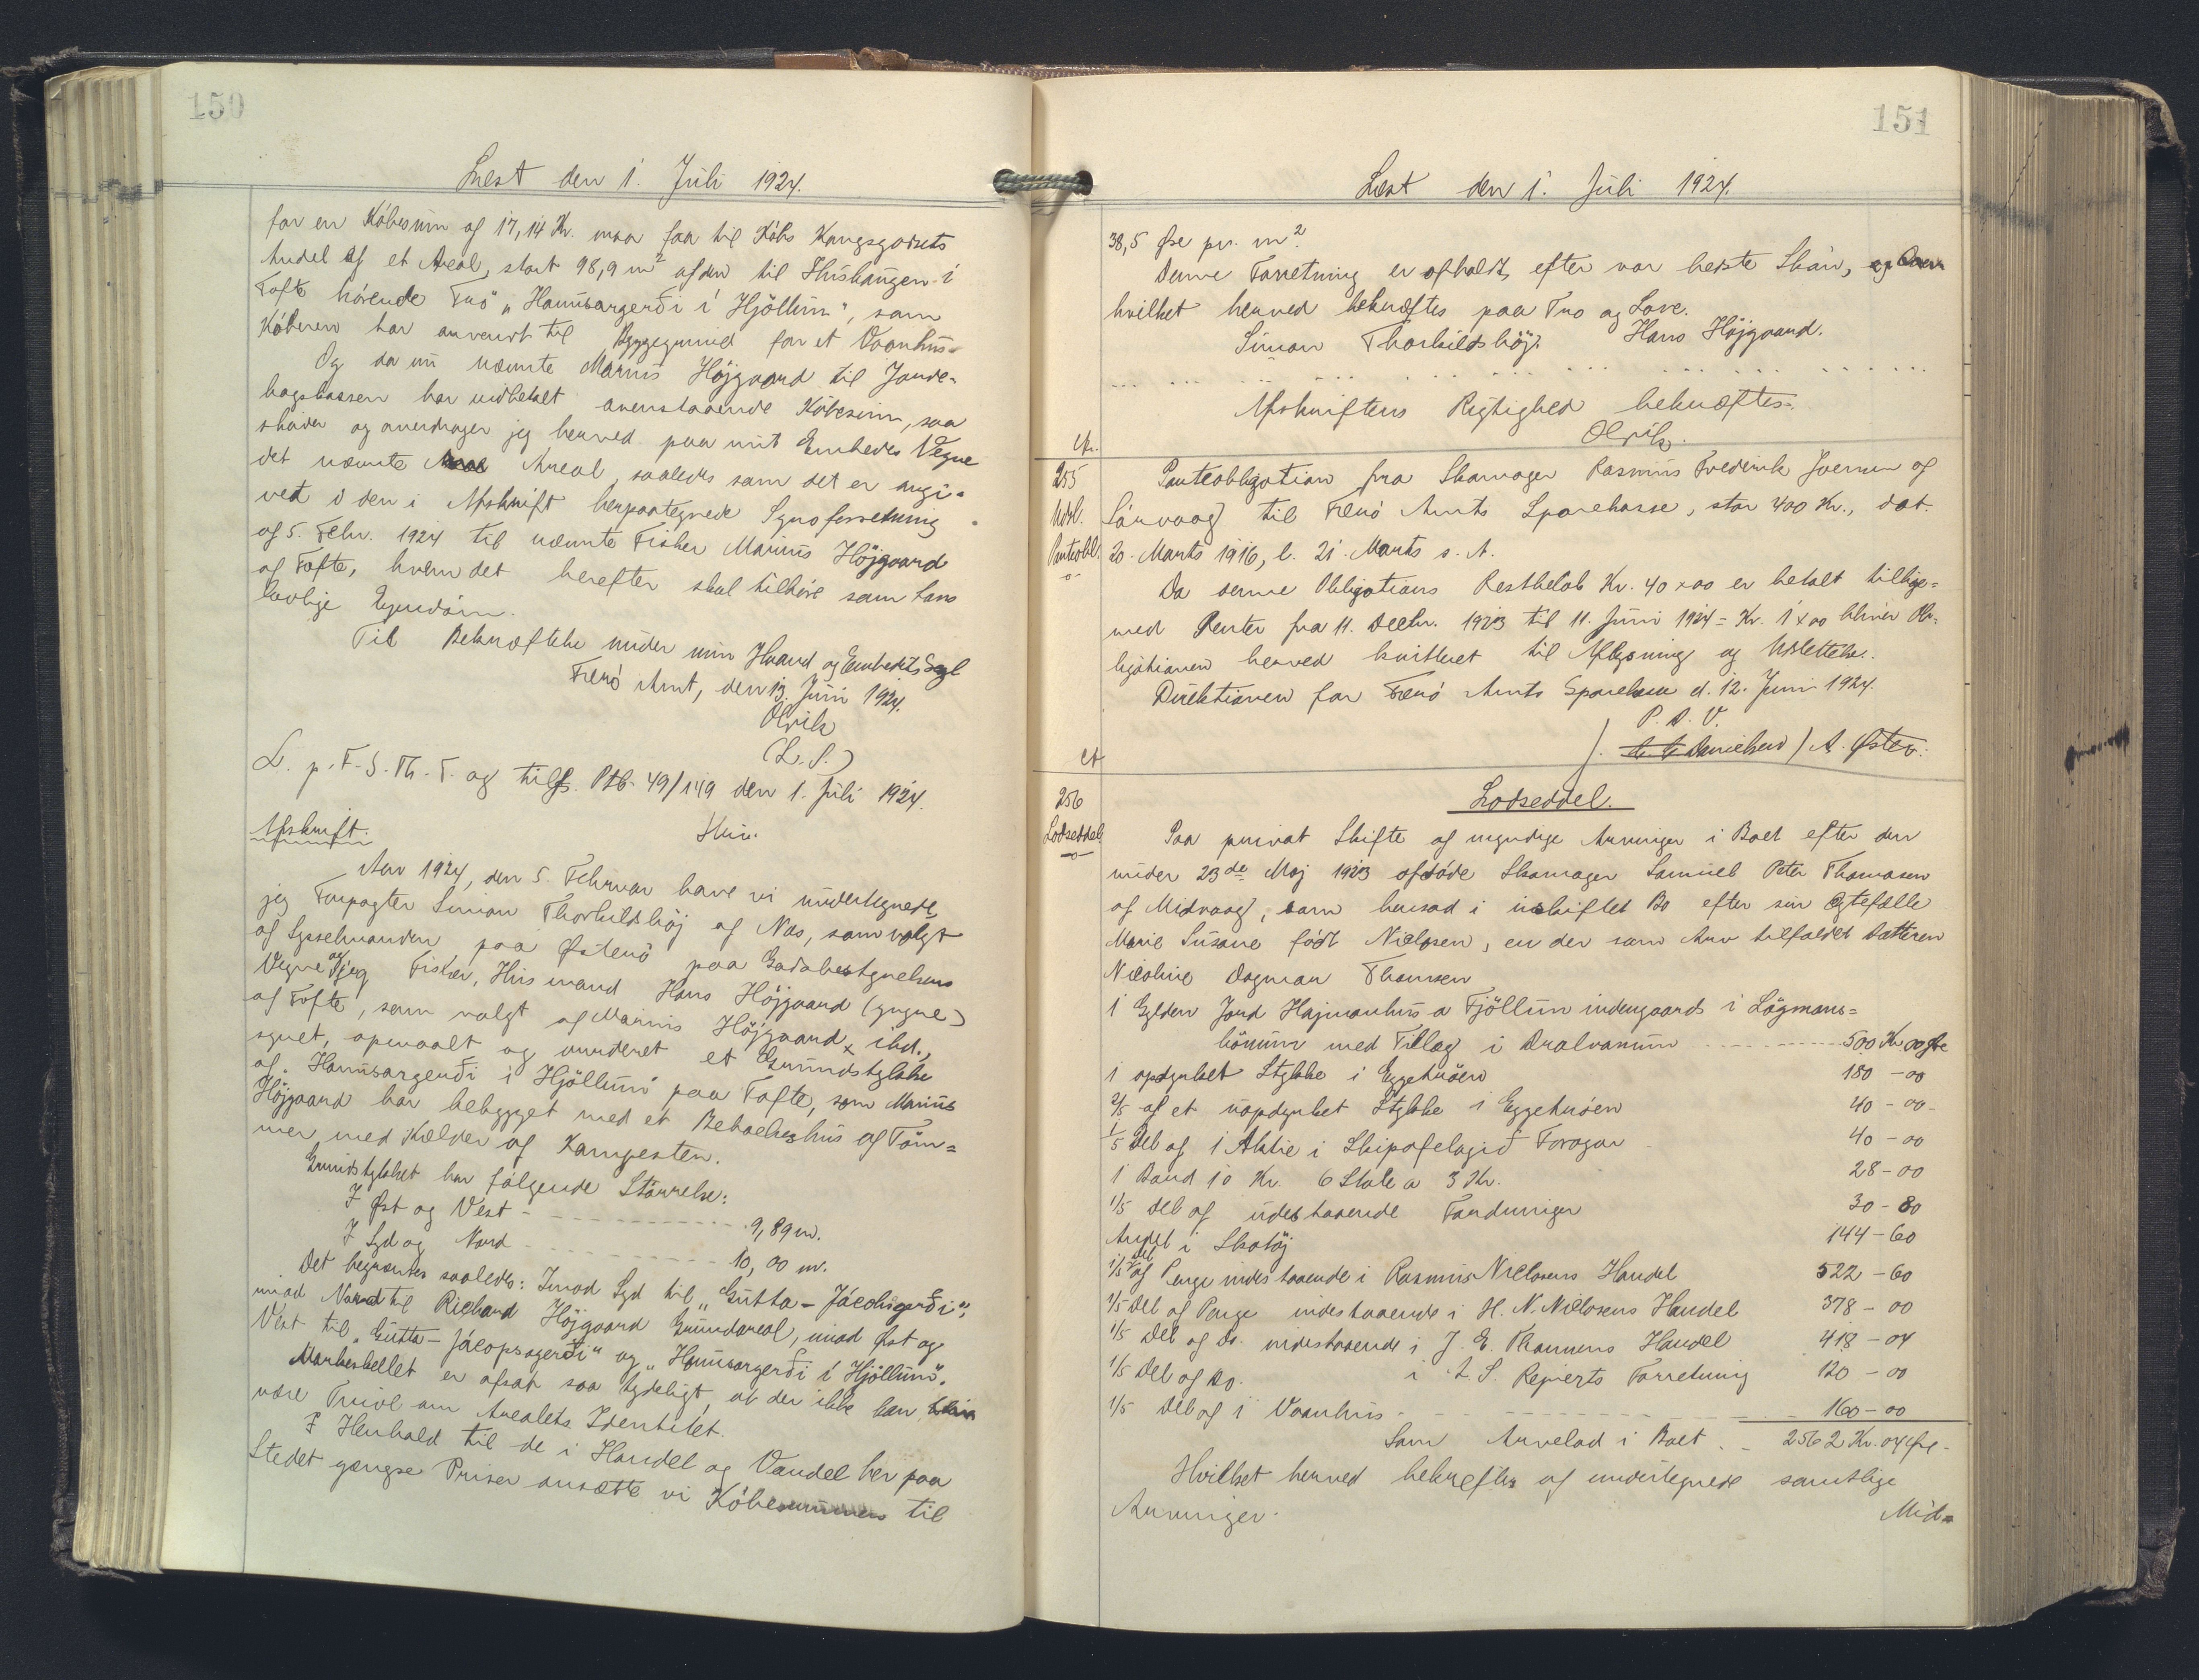 150
Læst den 1. Juli 1924.
for en Købesum af 17,14 Kr. maa faa til Købs Kongsgodsets
Andel af et Areal, stort 98,9 m² af den til Húshaugen i
Tofte hørende Trö „Hanusargerði í Hjöllum“, som
Køberen har anvendt til Byggegrund for et Vaanhus.
Og da nu nævnte Marius Højgaard til Jorde-
bogskassen har indbetalt ovenstaaende Købesum, saa
skøder og overdrager jeg herved paa mit Embedes Vegne
det nævnte Areal, saaledes som det er angi-
vet i den i Afskrift herpaategnede Synsforretning
af 5. Febr. 1924 til nævnte Fisker Marius Höjgaard
af Tofte, hvem det herefter skal tilhøre som hans
lovlige Ejendom.
Til Bekræftelse under min Haand og Embedets Segl
Færø Amt, den 13. Juni 1924.
Olrik
(L. S.)
L. p. F. S. Th. T. og tilf. Ptb. 49/149 den 1. Juli 1924.
Afskrift.
Aar 1924, den 5. Februar have vi undertegnede,
jeg Forpagter Simon Thorkildshöj af Næs, som valgt
af Sysselmanden paa Østerö paa Godsbestyrelsens
Vegne og jeg Fisker, Husmand Hans Höjgaard (yngre)
af Tofte, som valgt af Marius Höjgaard, ibd.,
synet, opmaalt og vurderet et Grundstykke
af „Hanusargerði i Hjöllum“ paa Tofte, som Marius
Höjgaard har bebygget med et Beboelseshus af Töm-
mer med Kælder af Kampesten.
Grundstykket har følgende Størrelse:
I Øst og Vest - - - 9,89 m.
I Syd og Nord - - - 10,00 m.
Det begrænses saaledes: Imod Syd til „Gutta-Jácobsgerði“,
mod Nord til Richard Höjgaard Grundareal, imod Øst og
Vest til „Gutta-Jácopsgerði“ og „Hanusargerði í Hjöllum“.
Markeskellet er afsat saa tydeligt, at der ikke kan
være Tvivl om Arealets Identitet.
I Henhold til de i Handel og Vandel her paa
Stedet gængse Priser ansætte vi Købesummen til
151
Læst den 1. Juli 1924.
38,5 Øre pr. m².
Denne Forretning er afholdt efter vor bedste Skøn,
hvilket herved bekræftes paa Tro og Love.
Simon Thorkildshöj. Hans Höjgaard.
Afskriftens Rigtighed bekræftes.
Olrik.
255 Panteobligation fra Skomager Rasmus Frederik Joensen af
Udsl. Sórvaag til Færø Amts Sparekasse, stor 400 Kr., dat.
Panteobl. 20. Marts 1916, l. 21. Marts s. A.
Da denne Obligations Restbeløb Kr. 40 x 00 er betalt tillige-
med Renter fra 11. Decbr. 1923 til 11. Juni 1924 = Kr. 1 x 00 bliver Ob-
ligationen herved kvitteret til Aflysning og Udslettelse.
Direktionen for Færö Amts Sparekasse d. 12. Juni 1924.
P. D. V.
Danielsen / A. Øster.
256 Lodseddel.
Lodseddel Paa privat Skifte af myndige Arvinger i Boet efter den
under 23de Maj 1923 afdøde Skomager Samuel Peter Thomasen
af Midvaag, som hensad i uskiftet Bo efter sin Ægtefælle
Marie Susane født Nielsen, er der som Arv tilfaldet Datteren
Nicoline Dagmar Thomsen
1 Gylden Jord Hajmanhús a Fjöllum indengaards i Lögmans-
bönum med Tillæg i Dralvanum - - - 500 Kr 00 Øre
1 opdyrket Stykke i Eggetröen 180 - 00
2/5 af et uopdyrket Stykke i Eggetröen 40 - 00
1/5 Del af 1 Aktie i Skipafelagið Føroyar 40 - 00
1 Baad 10 Kr. 6 Stole a 3 Kr. 28 - 00
1/5 Del af udestaaende Fordringer 30 - 80
Andel i Skotöj 144 - 60
1/5 Del af Penge indestaaende i Rasmus Nielsens Handel 522 - 60
1/5 Del af Penge indestaaende i H. N. Nielsens Handel 378 - 00
1/5 Del af do. indestaaende i J. E. Thomsens Handel 418 - 04
1/5 Del af do. i L. S. Reinerts Forretning 120 - 00
1/5 Del af i Vaanhus - - - 160 - 00
Som Arvelod i Boet - - 2562 Kr. 04 Øre
Hvilket herved bekræftes af undertegnede samtlige
Arvinger. Mid-